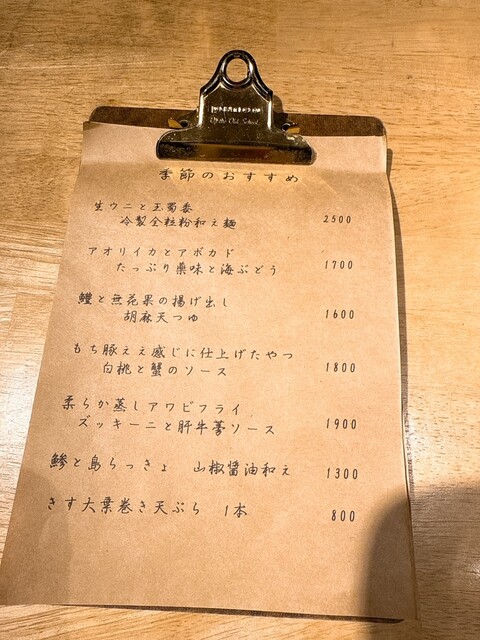 季節のおすすめ
生ウニと玉蜀黍
冷製全粒粉和え麺 2500
アオリイカとアボカド
たっぷり薬味と海ぶどう 1700
鱧と無花果の揚げ出し
胡麻天つゆ 1600
もち豚ええ感じに仕上げたやつ
白桃と蟹のソース 1800
柔らか蒸しアワビフライ
ズッキーニと肝牛蒡ソース 1900
鯵と島らっきょ 山椒醤油和え 1300
きす大葉巻き天ぷら 1本 800